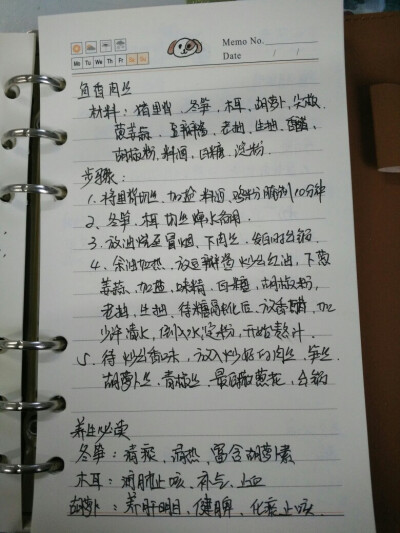 Memo No.
Date / /
Mo Tu We Th Fr Sa Su
鱼香肉丝
材料：猪里脊、冬笋、木耳、胡萝卜、尖椒、
葱姜蒜、豆瓣酱、老抽、生抽、香醋、
胡椒粉、料酒、白糖、淀粉.
步骤：
1、将里脊切丝、加盐、料酒、淀粉腌制10分钟
2、冬笋、木耳切丝焯水备用.
3、放油烧至冒烟、下肉丝、变白时出锅.
4、余油加热、放豆瓣酱炒出红油、下葱
姜蒜、加盐、味精、白糖、胡椒粉,
老抽、生抽、待糖融化后、放香醋、加
少许清水、倒入水淀粉、开始熬汁.
5、待炒出香味、放入炒好的肉丝、笋丝、
胡萝卜丝、青椒丝、最后撒葱花、出锅
养生必读
冬笋：清痰、滑热、富含胡萝卜素
木耳：润肺止咳、补气、止血
胡萝卜：养肝明目、健脾、化痰止咳